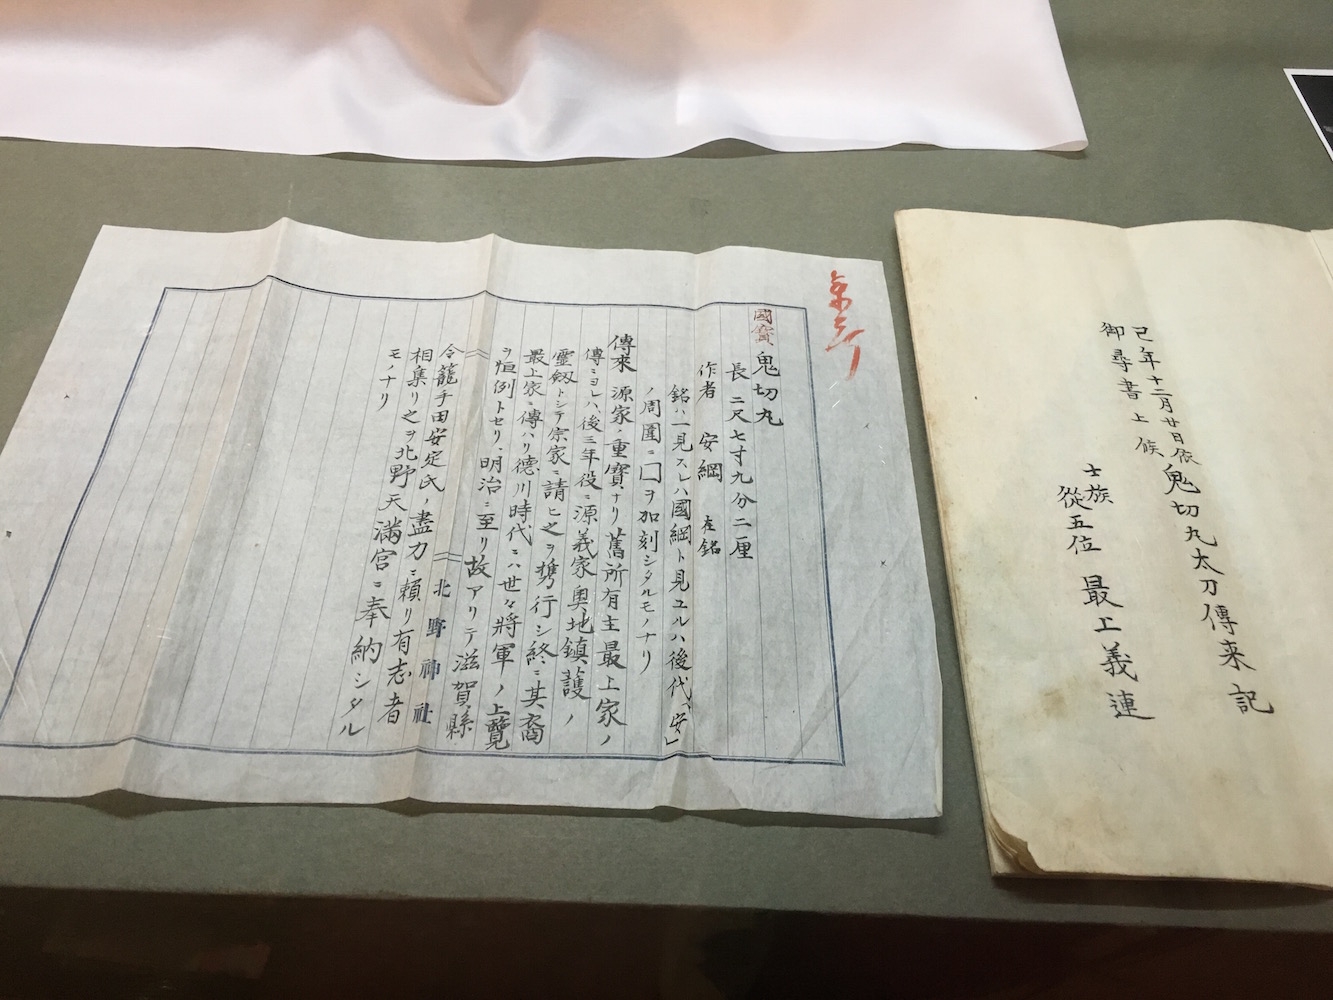 國寳 鬼切丸
長 二尺七寸九分二厘
作者 安綱 在銘
銘ハ一見スレハ國綱ト見ユルハ後代、安」
ノ周圍ニ口ヲ加刻シタルモノナリ
傳來 源家ノ重寳ナリ舊所有主最上家ノ
傳ニヨレハ後三年役ニ源義家奥地鎮護ノ
靈劔トシテ宗家ニ請ヒ之ヲ携行シ終ニ其裔
最上家ニ傳ハリ德川時代ニハ世々將軍ノ上覽
ヲ恒例トセリ、明治ニ至リ故アリテ滋賀縣
令籠手田安定氏ノ盡力ニ頼リ有志者
相集リ之ヲ北野天滿宮ニ奉納シタル
モノナリ
北野神社
鬼切丸太刀傳来記
己年十二月廿日依
御尋書上候
士族
從五位 最上義連